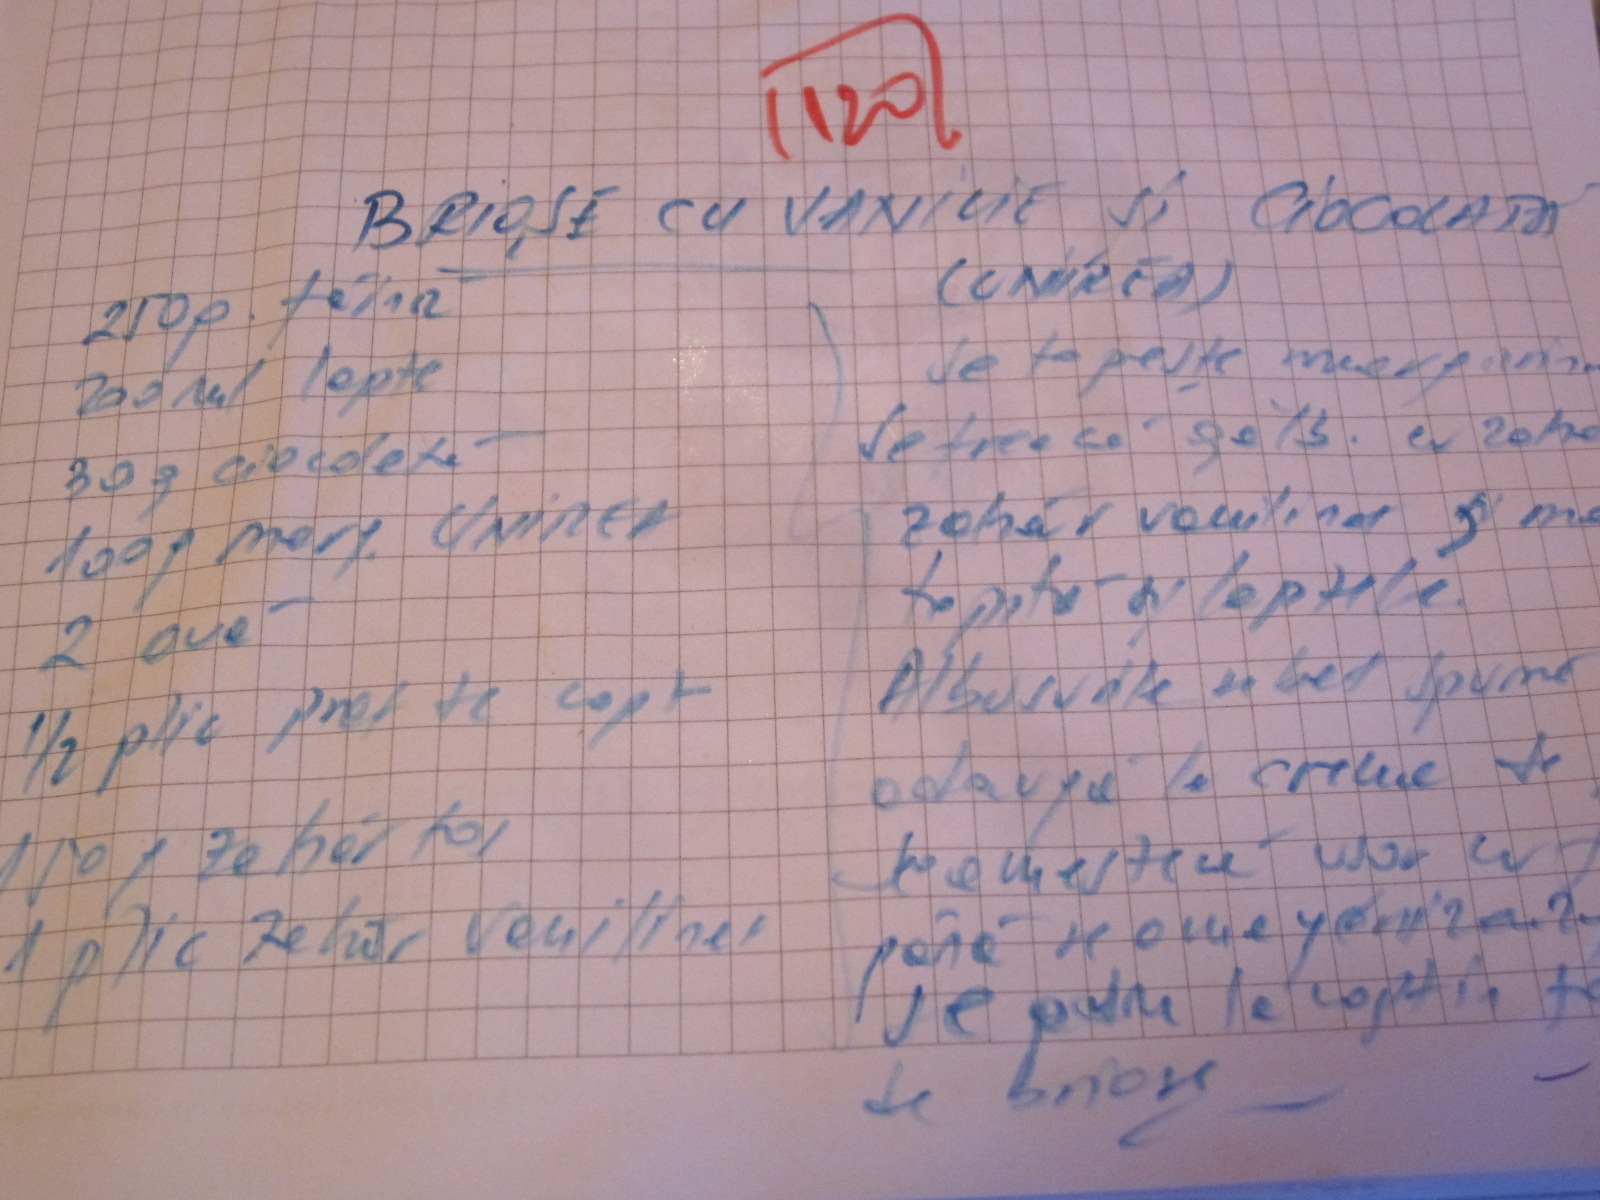 1120
BRIOȘE CU VANILIE și CIOCOLATĂ
(UNIREA)
250g. făină
200ml lapte
30g ciocolată
100g marg. UNIREA
2 ouă
1/2 plic praf de copt
150g zahăr tos
1 plic zahăr vanilinat
Se topește margarina
Se freacă gălb. cu zahă
zahăr vanilinat și ma
topită și laptele.
Albușurile se bat spumă
adaugă la crema de
se amestecă ușor cu
până se omogenizează
Se pune la copt în fo
de brioșe